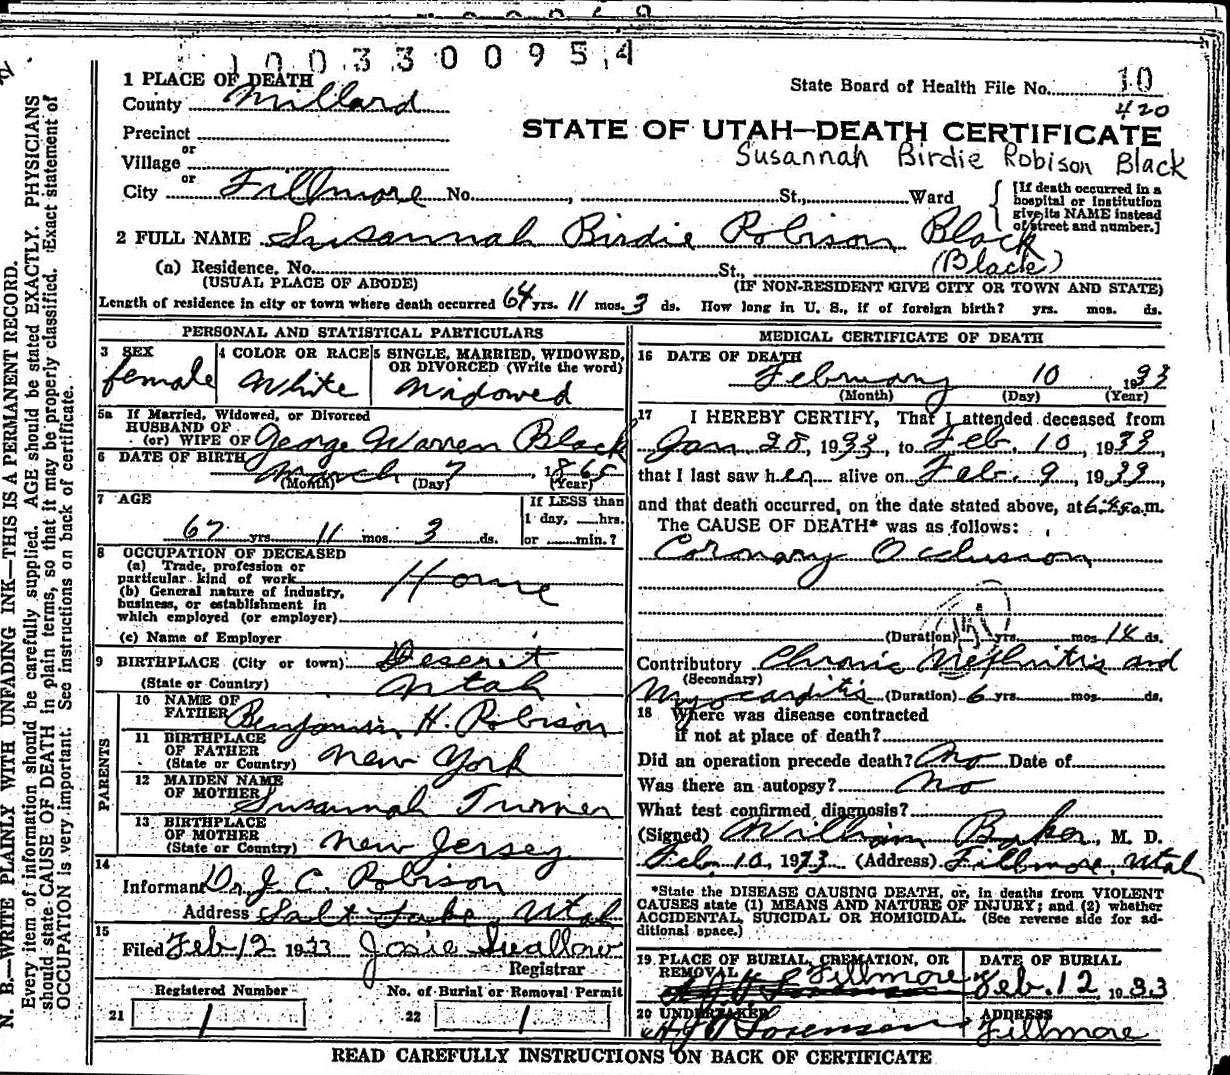 1003300954
1 PLACE OF DEATH
State Board of Health File No. 10
420
County Millard
Precinct
or
Village
or
STATE OF UTAH—DEATH CERTIFICATE
Susannah Birdie Robison Black
City Fillmore No. , St., Ward
[If death occurred in a
hospital or institution
give its NAME instead
of street and number.]
2 FULL NAME Susannah Birdie Robison Black
(Black)
(a) Residence, No. St.,
(USUAL PLACE OF ABODE) (IF NON-RESIDENT GIVE CITY OR TOWN AND STATE)
Length of residence in city or town where death occurred 64 yrs. 11 mos. 3 ds. How long in U. S., if of foreign birth? yrs. mos. ds.
PERSONAL AND STATISTICAL PARTICULARS
3 SEX
female
4 COLOR OR RACE
White
5 SINGLE, MARRIED, WIDOWED,
OR DIVORCED (Write the word)
Widowed
5a If Married, Widowed, or Divorced
HUSBAND OF
(or) WIFE OF George Warren Black
6 DATE OF BIRTH
March 7, 1865
(Month) (Day) (Year)
7 AGE
67 yrs 11 mos. 3 ds.
If LESS than
1 day, hrs.
or min.?
8 OCCUPATION OF DECEASED
(a) Trade, profession or
particular kind of work
Home
(b) General nature of industry,
business, or establishment in
which employed (or employer)
(c) Name of Employer
9 BIRTHPLACE (City or town) Deseret
(State or Country) Utah
PARENTS
10 NAME OF
FATHER Benjamin H. Robison
11 BIRTHPLACE
OF FATHER
(State or Country) New York
12 MAIDEN NAME
OF MOTHER Susannah Turner
13 BIRTHPLACE
OF MOTHER
(State or Country) New Jersey
14
Informant Dr. J. C. Robison
Address Salt Lake, Utah
15
Filed Feb 12 1933 Josie Swallow
Registrar
Registered Number
21 1
No. of Burial or Removal Permit
22 1
MEDICAL CERTIFICATE OF DEATH
16 DATE OF DEATH
February 10, 1933
(Month) (Day) (Year)
17 I HEREBY CERTIFY, That I attended deceased from
Jan 28, 1933, to Feb. 10, 1933
that I last saw her alive on Feb. 9, 1933,
and that death occurred, on the date stated above, at a.m.
The CAUSE OF DEATH* was as follows:
Coronary Occlusion
(Duration) yrs. mos. 14 ds.
Contributory Chronic Nephritis and
(Secondary)
Myocarditis (Duration) 6 yrs. mos. ds.
18 Where was disease contracted
if not at place of death?
Did an operation precede death? No Date of
Was there an autopsy? No
What test confirmed diagnosis?
(Signed) William Baker, M. D.
Feb. 10, 1933 (Address) Fillmore, Utah
*State the DISEASE CAUSING DEATH, or, in deaths from VIOLENT
CAUSES state (1) MEANS AND NATURE OF INJURY; and (2) whether
ACCIDENTAL, SUICIDAL OR HOMICIDAL. (See reverse side for ad-
ditional space.)
19 PLACE OF BURIAL, CREMATION, OR
REMOVAL Fillmore
DATE OF BURIAL
Feb. 12, 1933
20 UNDERTAKER
Sorenson
ADDRESS
Fillmore
READ CAREFULLY INSTRUCTIONS ON BACK OF CERTIFICATE
N. B.—WRITE PLAINLY WITH UNFADING INK—THIS IS A PERMANENT RECORD.
Every item of information should be carefully supplied. AGE should be stated EXACTLY. PHYSICIANS
should state CAUSE OF DEATH in plain terms, so that it may be properly classified. Exact statement of
OCCUPATION is very important. See instructions on back of certificate.